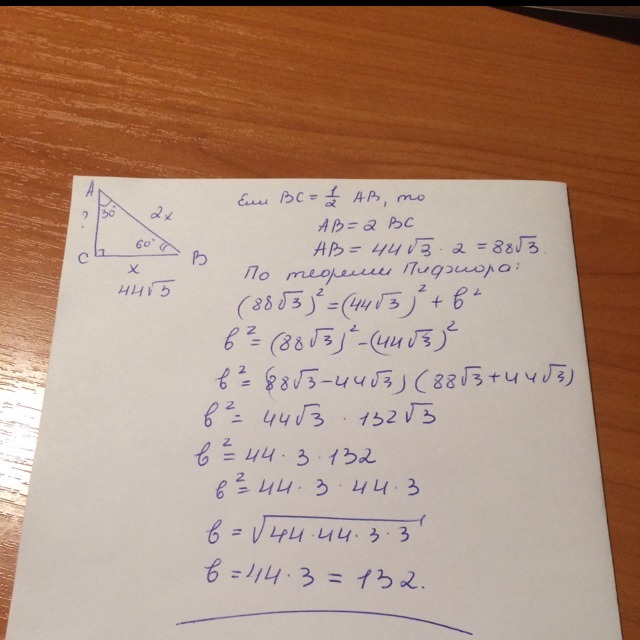 A
30°
2x
?
60°
C
B
x
44√3
Если BC = 1/2 AB, то
AB = 2 BC
AB = 44√3 · 2 = 88√3.
По теореме Пифагора:
(88√3)² = (44√3)² + b²
b² = (88√3)² - (44√3)²
b² = (88√3 - 44√3) (88√3 + 44√3)
b² = 44√3 · 132√3
b² = 44 · 3 · 132
b² = 44 · 3 · 44 · 3
b = √44·44·3·3
b = 44 · 3 = 132.